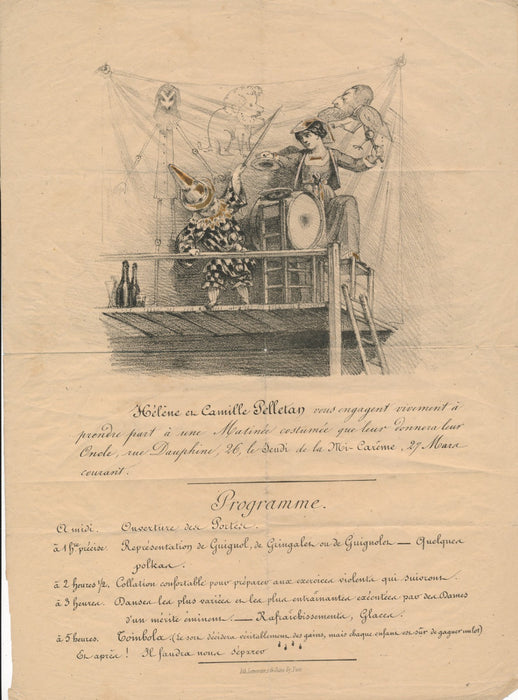 Hélène et Camille Pelletan vous engagent vivement à
prendre part à une Matinée costumée que leur donnera leur
Oncle, rue Dauphine, 26, le Jeudi de la Mi-Carême, 27 Mars
courant.
Programme.
A midi. Ouverture des Portes.
à 1 hre précise. Représentation de Guignol, de Gringalet ou de Guignolet — Quelques
polkas.
à 2 heures 1/2. Collation confortable pour préparer aux exercices violents qui suivront.
à 3 heures. Danses les plus variées et les plus entraînantes exécutées par des Dames
d'un mérite éminent. — Rafraîchissements, Glaces.
à 5 heures. Tombola. (le sort décidera véritablement des gains, mais chaque enfant est sûr de gagner un lot)
Et après ! Il faudra nous séparer !!!!